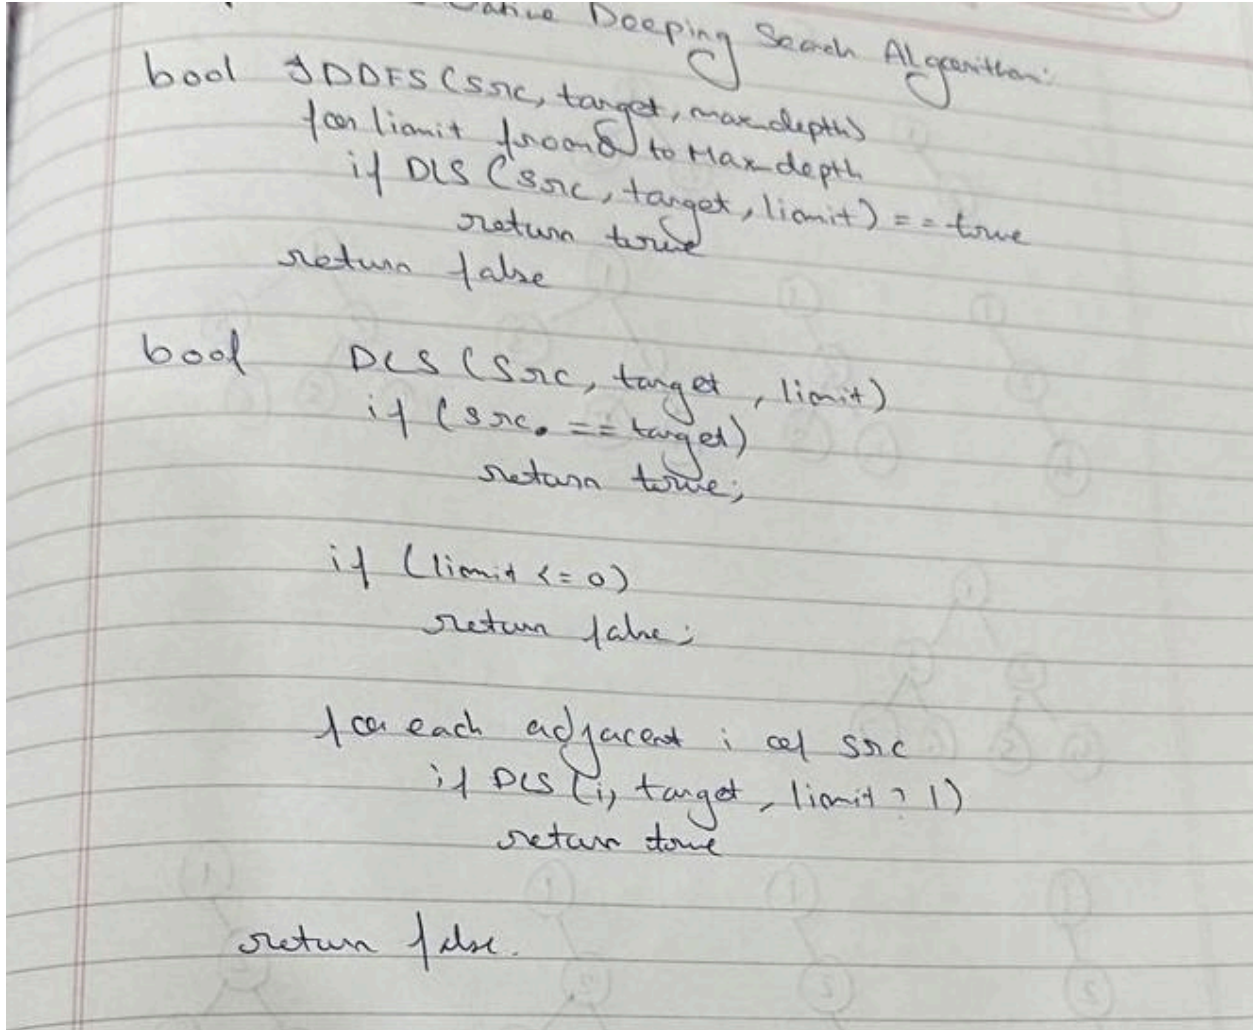 Deeping Search Algorithm:
bool IDDFS (Src, target, max_depth)
for limit from 0 to Max_depth
if DLS (Src, target, limit) == true
return true
return false
bool DLS (Src, target, limit)
if (src. == target)
return true;
if (limit <= 0)
return false;
for each adjacent i of src
if DLS (i, target, limit ? 1)
return true
return false.